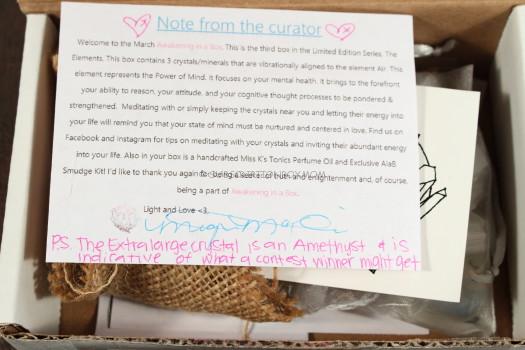 Note from the curator
Welcome to the March Awakening in a Box. This is the third box in the Limited Edition Series, The
Elements. This box contains 3 crystals/minerals that are vibrationally aligned to the element Air. This
element represents the Power of Mind. It focuses on your mental health. It brings to the forefront
your ability to reason, your attitude, and your cognitive thought processes to be pondered &
strengthened. Meditating with or simply keeping the crystals near you and letting their energy into
your life will remind you that your state of mind must be nurtured and centered in love. Find us on
Facebook and Instagram for tips on meditating with your crystals and inviting their abundant energy
into your life. Also in your box is a handcrafted Miss K's Tonics Perfume Oil and Exclusive AiaB
Smudge Kit! I'd like to thank you again for being a seeker of truth and enlightenment and, of course,
being a part of Awakening in a Box.
Light and Love <3,
P.S. The Extra large crystal is an Amethyst & is
indicative of what a contest winner might get